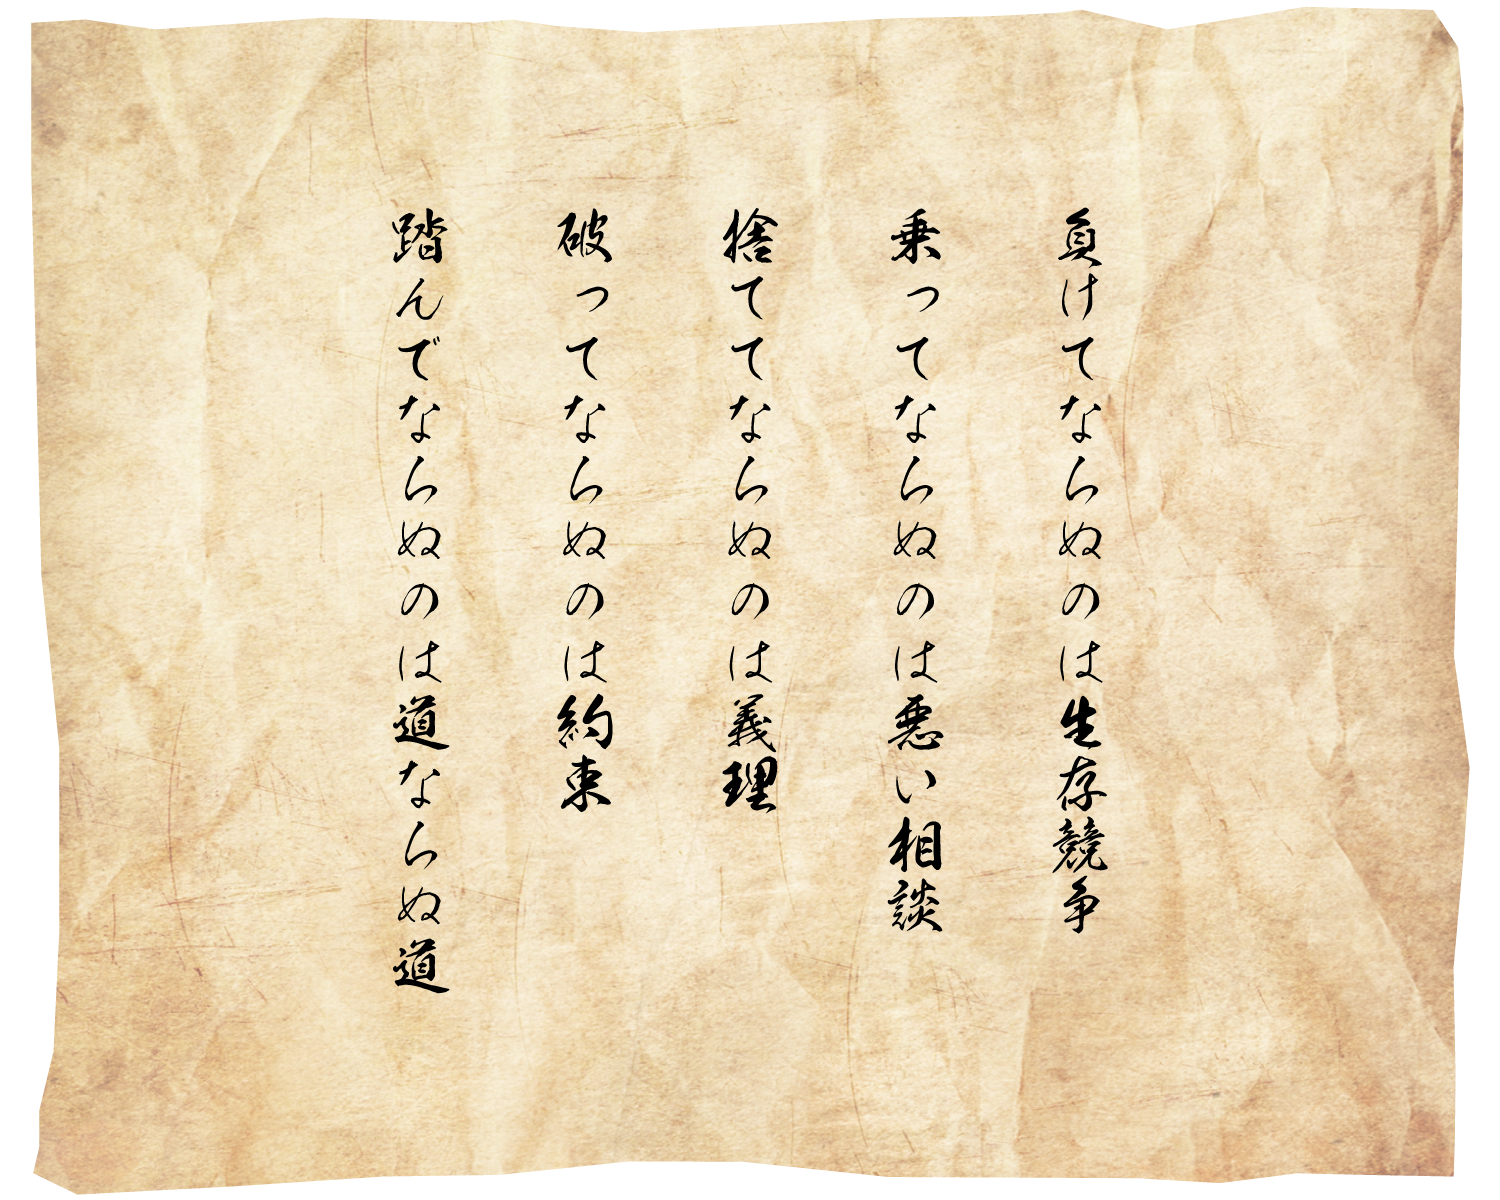 負けてならぬのは生存競争
乗ってならぬのは悪い相談
捨ててならぬのは義理
破ってならぬのは約束
踏んでならぬのは道ならぬ道